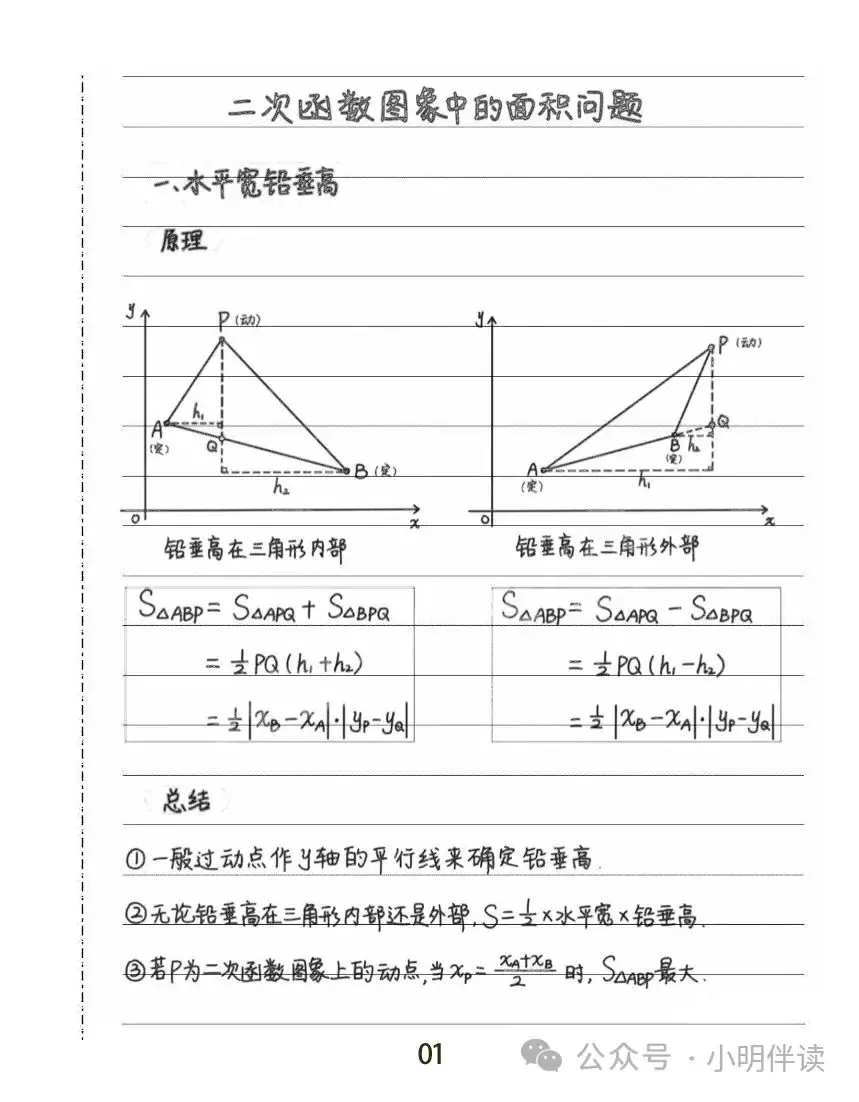 二次函数图象中的面积问题
一、水平宽铅垂高
原理
y
P(动)
A
(定)
h₁
Q
B(定)
h₂
O
x
y
P(动)
Q
B
(定)
h₂
A
(定)
h₁
O
x
铅垂高在三角形内部
铅垂高在三角形外部
S△ABP = S△APQ + S△BPQ
= ½PQ(h₁+h₂)
= ½|xB-xA|·|yP-yQ|
S△ABP = S△APQ - S△BPQ
= ½PQ(h₁-h₂)
= ½|xB-xA|·|yP-yQ|
总结
①一般过动点作y轴的平行线来确定铅垂高.
②无论铅垂高在三角形内部还是外部,S=½×水平宽×铅垂高.
③若P为二次函数图象上的动点,当xP=(xA+xB)/2时,S△ABP最大.
01
公众号·小明伴读